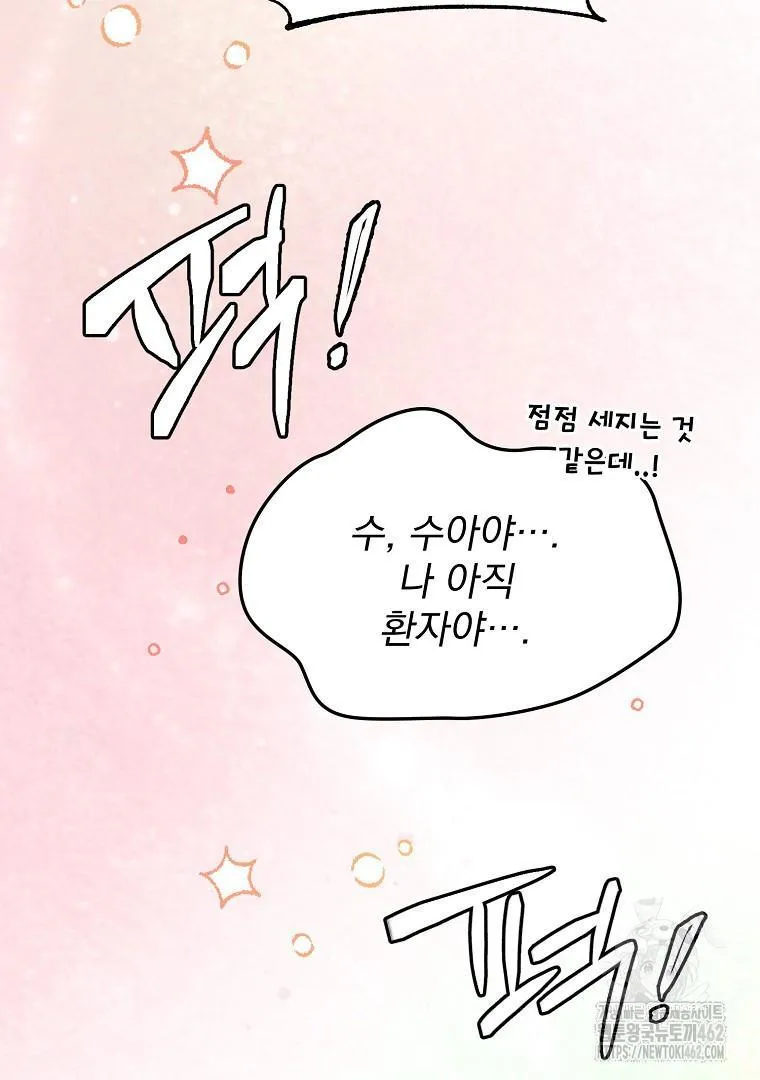 퍽!
점점 세지는 것
같은데..!
수, 수아야….
나 아직
환자야….
퍽!
가장빠른 웹툰제공사이트
웹툰왕국뉴토끼462
HTTPS://NEWTOKI462.COM